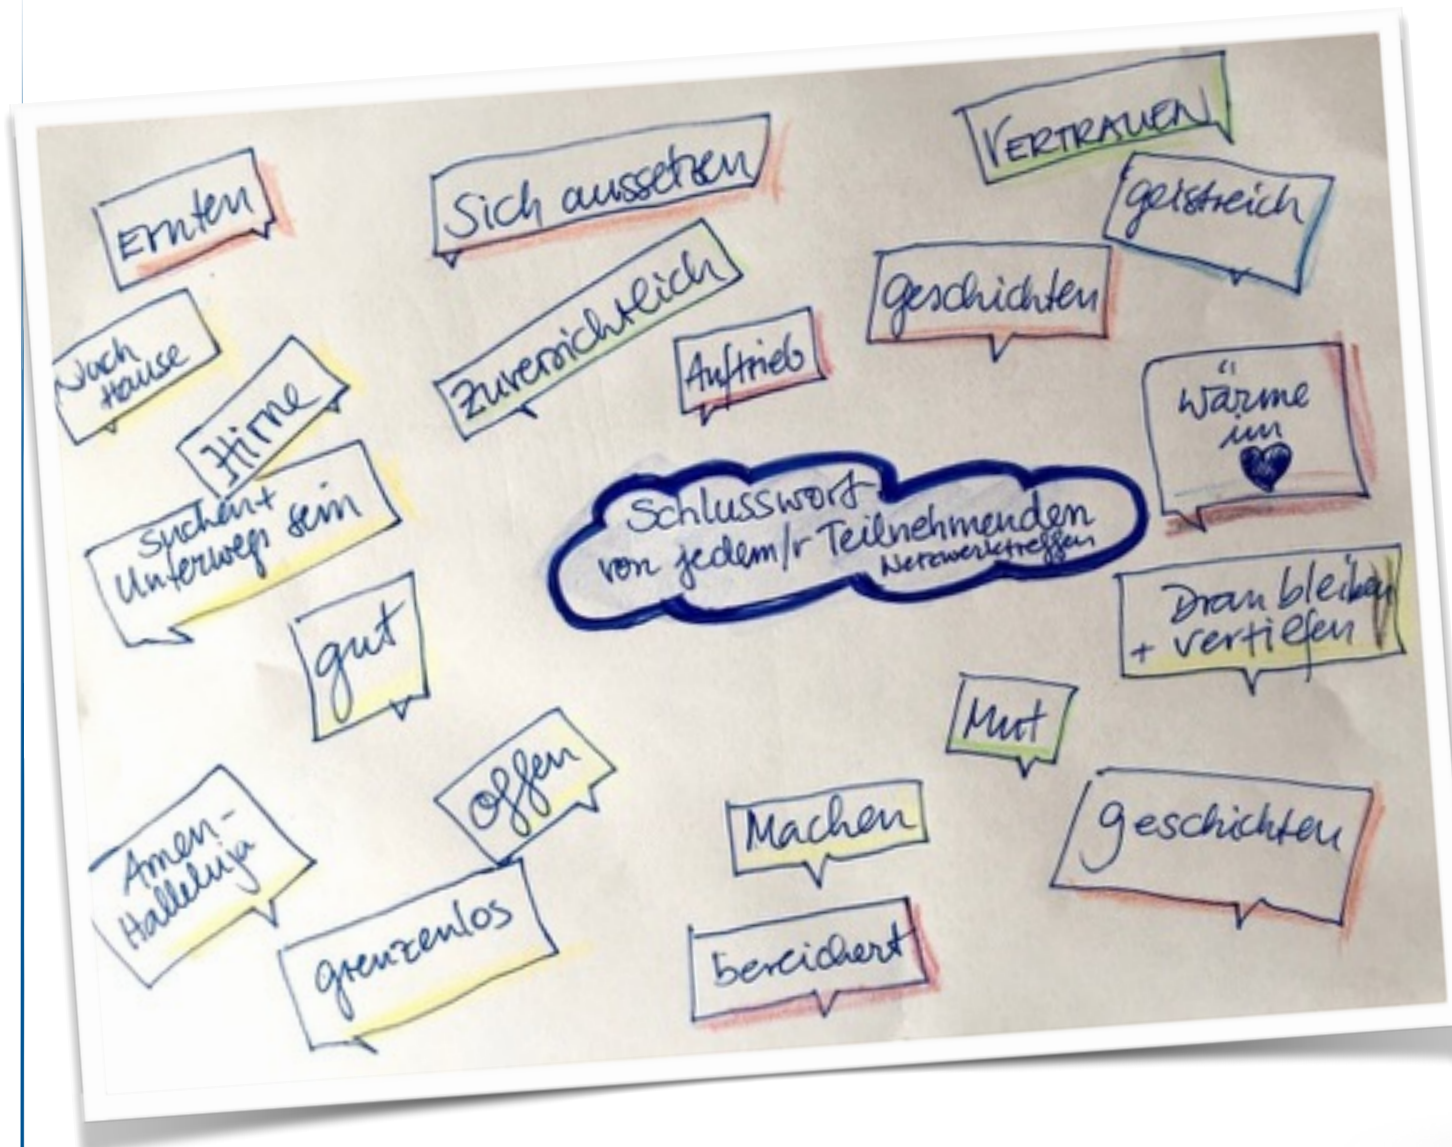 VERTRAUEN
Ernten
Sich aussetzen
geistreich
Zuversichtlich
geschichten
Nach
Hause
Auftrieb
Hirne
Wärme
im
Suchen +
Unterwegs sein
Schlusswort
von jedem/r Teilnehmenden
Netzwerktreffen
Dran bleiben
+ vertiefen
gut
Mut
offen
Machen
geschichten
Amen-
Halleluja
grenzenlos
bereichert